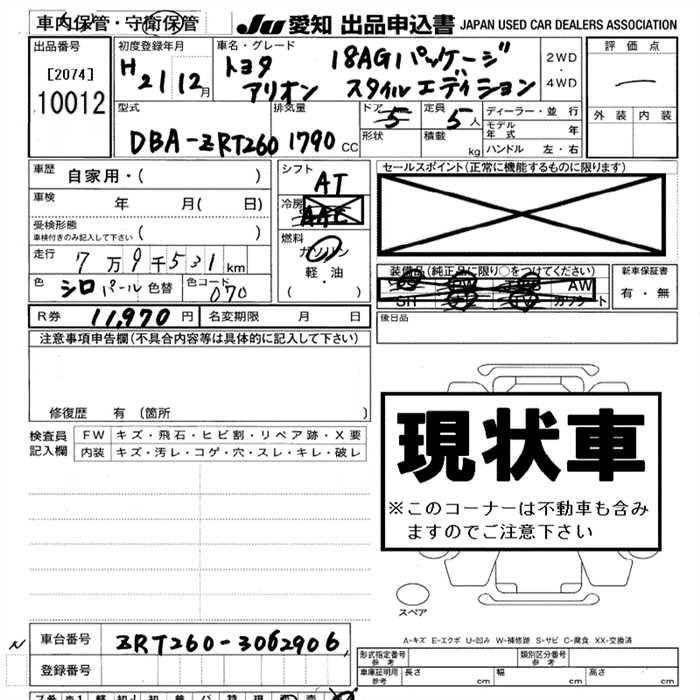 車内保管・守衛保管
JU 愛知 出品申込書 JAPAN USED CAR DEALERS ASSOCIATION
出品番号
[2074]
10012
初度登録年月
H 21 12月
車名・グレード
トヨタ 18AG1パッケージ
アリオン スタイルエディション
2WD
・
4WD
評価点
外装 内装
型式
DBA-ZRT260
排気量
1790 CC
ドア 5
形状
定員 5人
積載 kg
ディーラー・並行
モデル年式 年
ハンドル 左・右
車歴 自家用・( )
車検 年 月( 日)
受検形態
車検付きのみ記入して下さい ( )
走行 7万9千531km
色 シロパール 色替
色コード 070
シフト AT
冷房 AAC
燃料
ガソリン
軽・油
( ・ )
セールスポイント(正常に機能するものに限ります)
装備品(純正品に限り○をつけてください)
AW
SH ナビ TV カワシート
新車保証書
有・無
R券 11,970円
名変期限 月 日
後日品
注意事項申告欄(不具合内容等は具体的に記入して下さい)
修復歴 有(箇所 )
検査員
記入欄
FW キズ・飛石・ヒビ割・リペア跡・X要
内装 キズ・汚レ・コゲ・穴・スレ・キレ・破レ
現状車
※このコーナーは不動車も含み
ますのでご注意下さい
スペア
A-キズ E-エクボ U-凹み W-補修跡 S-サビ C-腐食 XX-交換済
N
車台番号 ZRT260-3062906
登録番号
形式指定番号
参考
類別区分番号
参考
車庫証明用
参考
長さ cm 幅 cm 高さ cm